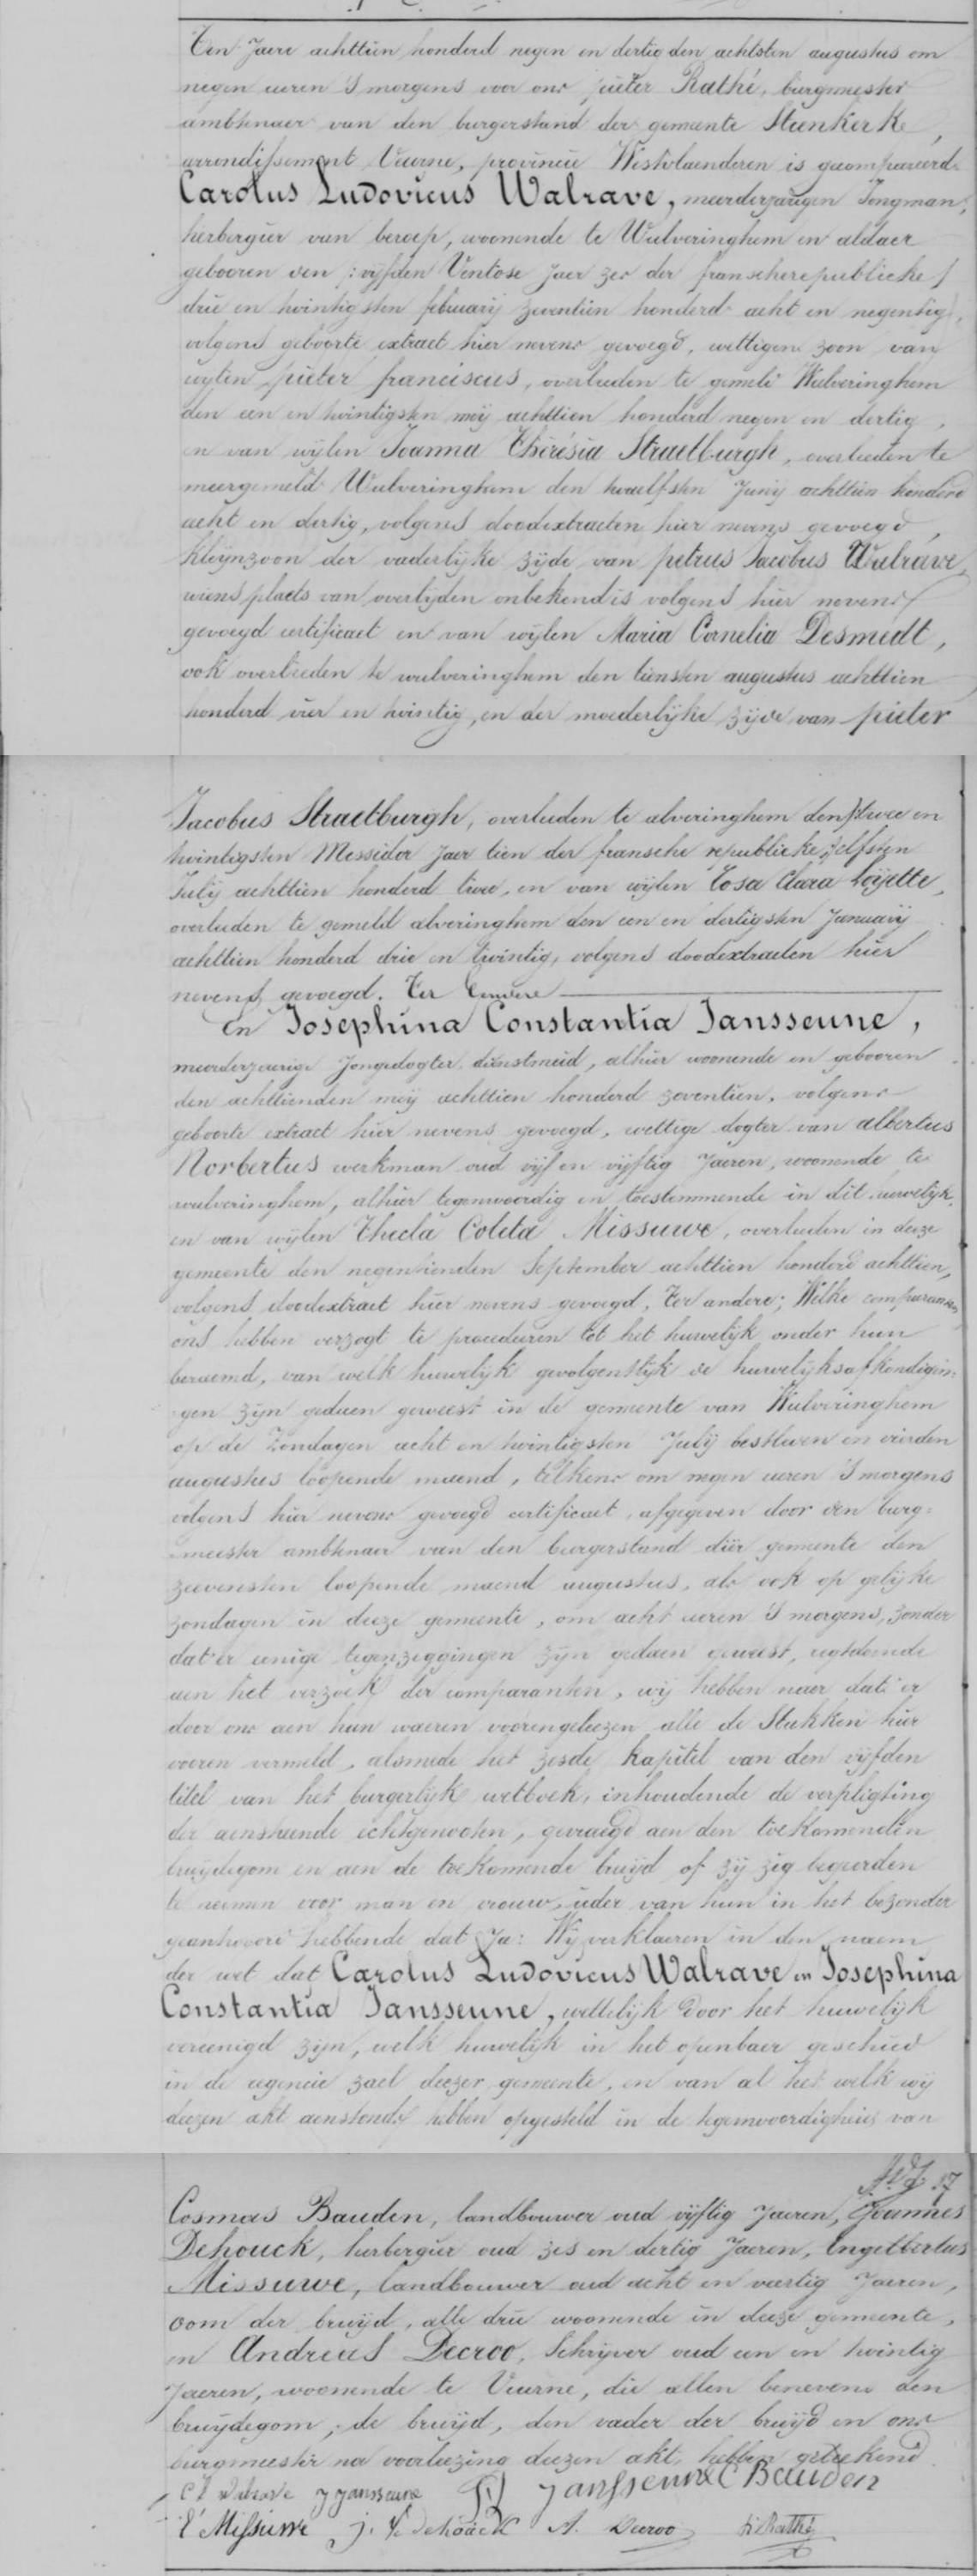 Ten Jaere achttien honderd negen en dertig den achtsten augustus om
negen ueren 's morgens voor ons pieter Rathé, burgmeester
ambtenaer van den burgerstand der gemeente Steenkerke,
arrondissement Veurne, provincie Westvlaenderen is gecompareerd
Carolus Ludovicus Walrave, meerderjarigen Jongman,
herbergier van beroep, woonende te Wulveringhem en aldaer
gebooren den vyfden Ventose Jaer zes der fransche republicke /
drie en twintigsten february zeventien honderd acht en negentig,
volgens geboorte extract hier nevens gevoegd, wettigen zoon van
wylen pieter franciscus, overleeden te gemeld Wulveringhem
den een en twintigsten meÿ achttien honderd negen en dertig,
en van wylen Joanna Thérésia Straetburgh, overleeden te
meergemeld Wulveringhem den twaelfsten Junÿ achttien honderd
acht en dertig, volgens doodextracten hier nevens gevoegd,
kleÿnzoon der vaderlyke zÿde van petrus Jacobus Walrave,
wiens plaets van overlyden onbekend is volgens hier nevens
gevoegd certificaet en van wylen Maria Cornelia Desmedt,
ook overleeden te wulveringhem den tiensten augustus achttien
honderd vier en twintig, en der moederlyke zÿde van pieter
Jacobus Straetburgh, overleeden te alveringhem den twee en
twintigsten Messidor Jaer tien der fransche republicke, elfsten
Julÿ achttien honderd twee, en van wylen Rosa Clara Loÿette,
overleeden te gemeld alveringhem den een en dertigsten Januarÿ
achttien honderd drie en twintig, volgens doodextracten hier
nevens gevoegd. Ter Eendere
En Josephina Constantia Jansseune,
meerderjaerige Jongedogter, dienstmeid, alhier woonende en gebooren
den achttienden meÿ achttien honderd zeventien, volgens
geboorte extract hier nevens gevoegd, wettige dogter van albertus
Norbertus werkman oud vyf en vyftig Jaeren, woonende te
wulveringhem, alhier tegenwoordig en toestemmende in dit huwelyk,
en van wylen Thecla Coleta Missuwe, overleeden in deeze
gemeente den negentienden September achttien honderd achttien,
volgens doodextract hier nevens gevoegd, Ter andere; Welke comparanten
ons hebben verzogt te procederen tot het huwelyk onder hun
beraemd, van welk huwelyk gevolgentlyk de huwelyksafkondigin-
gen zyn gedaen geweest in de gemeente van Wulveringhem
op de zondagen acht en twintigsten Julÿ bestleden en vierden
augustus loopende maend, telkens om negen ueren 's morgens
volgens hier nevens gevoegd certificaet, afgegeven door den burg-
meester ambtenaer van den burgerstand dier gemeente den
zevensten loopende maend augustus, als ook op gelyke
zondagen in deeze gemeente, om acht ueren 's morgens, zonder
dat er eenige tegenzeggingen zyn gedaen geweest, regtdoende
aen het verzoek der comparanten, wy hebben naer dat er
door ons aen hun waeren voorengeleezen alle de Stukken hier
vooren vermeld, alsmede het zesde kapitel van den vyfden
titel van het burgerlyk wetboek, inhoudende de verpligting
der aenstaende echtgenooten, gevraegd aen den toekomenden
bruÿdegom en aen de toekomende bruÿd of zy zig begeerden
te neemen voor man en vrouw, ieder van hun in het bezonder
geantwoord hebbende dat Ja: Wy verklaeren in den naem
der wet dat Carolus Ludovicus Walrave en Josephina
Constantia Jansseune, wettelyk door het huwelyk
vereenigd zyn, welk huwelyk in het openbaer geschied
in de regencie zael deezer gemeente, en van al het welk wy
deezen akt aenstonds hebben opgesteld in de tegenwoordigheid van
17
Cosmas Bauden, landbouwer oud vyftig Jaeren, Joannes
Dehouck, herbergier oud zes en dertig Jaeren, Engelbertus
Missuwe, landbouwer oud acht en veertig Jaeren,
oom der bruÿd, alle drie woonende in deeze gemeente,
en Andreas Decroo, Schryver oud een en twintig
Jaeren, woonende te Veurne, die allen benevens den
bruÿdegom, de bruÿd, den vader der bruÿd en ons
burgmeester na voorleezing deezen akt, hebben geteekend
C L Walrave J Jansseune Janssenne C Bauden
E Missuwe J. F. Dehouck A. Decroo P. Rathé